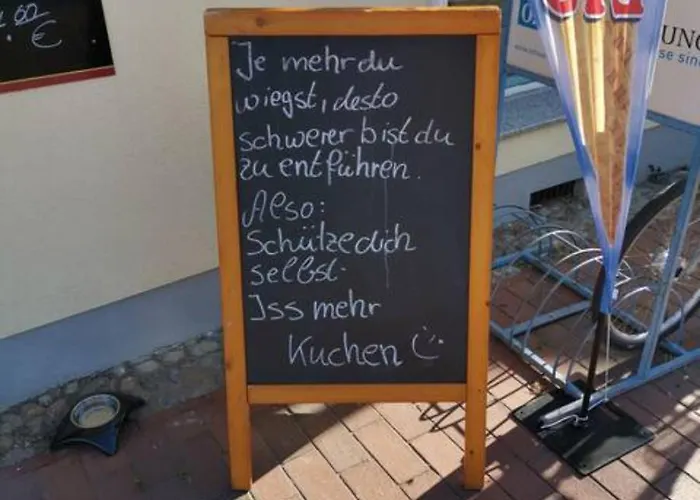 Je mehr du
wiegst, desto
schwerer bist du
zu entführen.
Also:
Schütze dich
selbst.
Iss mehr
Kuchen
€
UNG
se sin